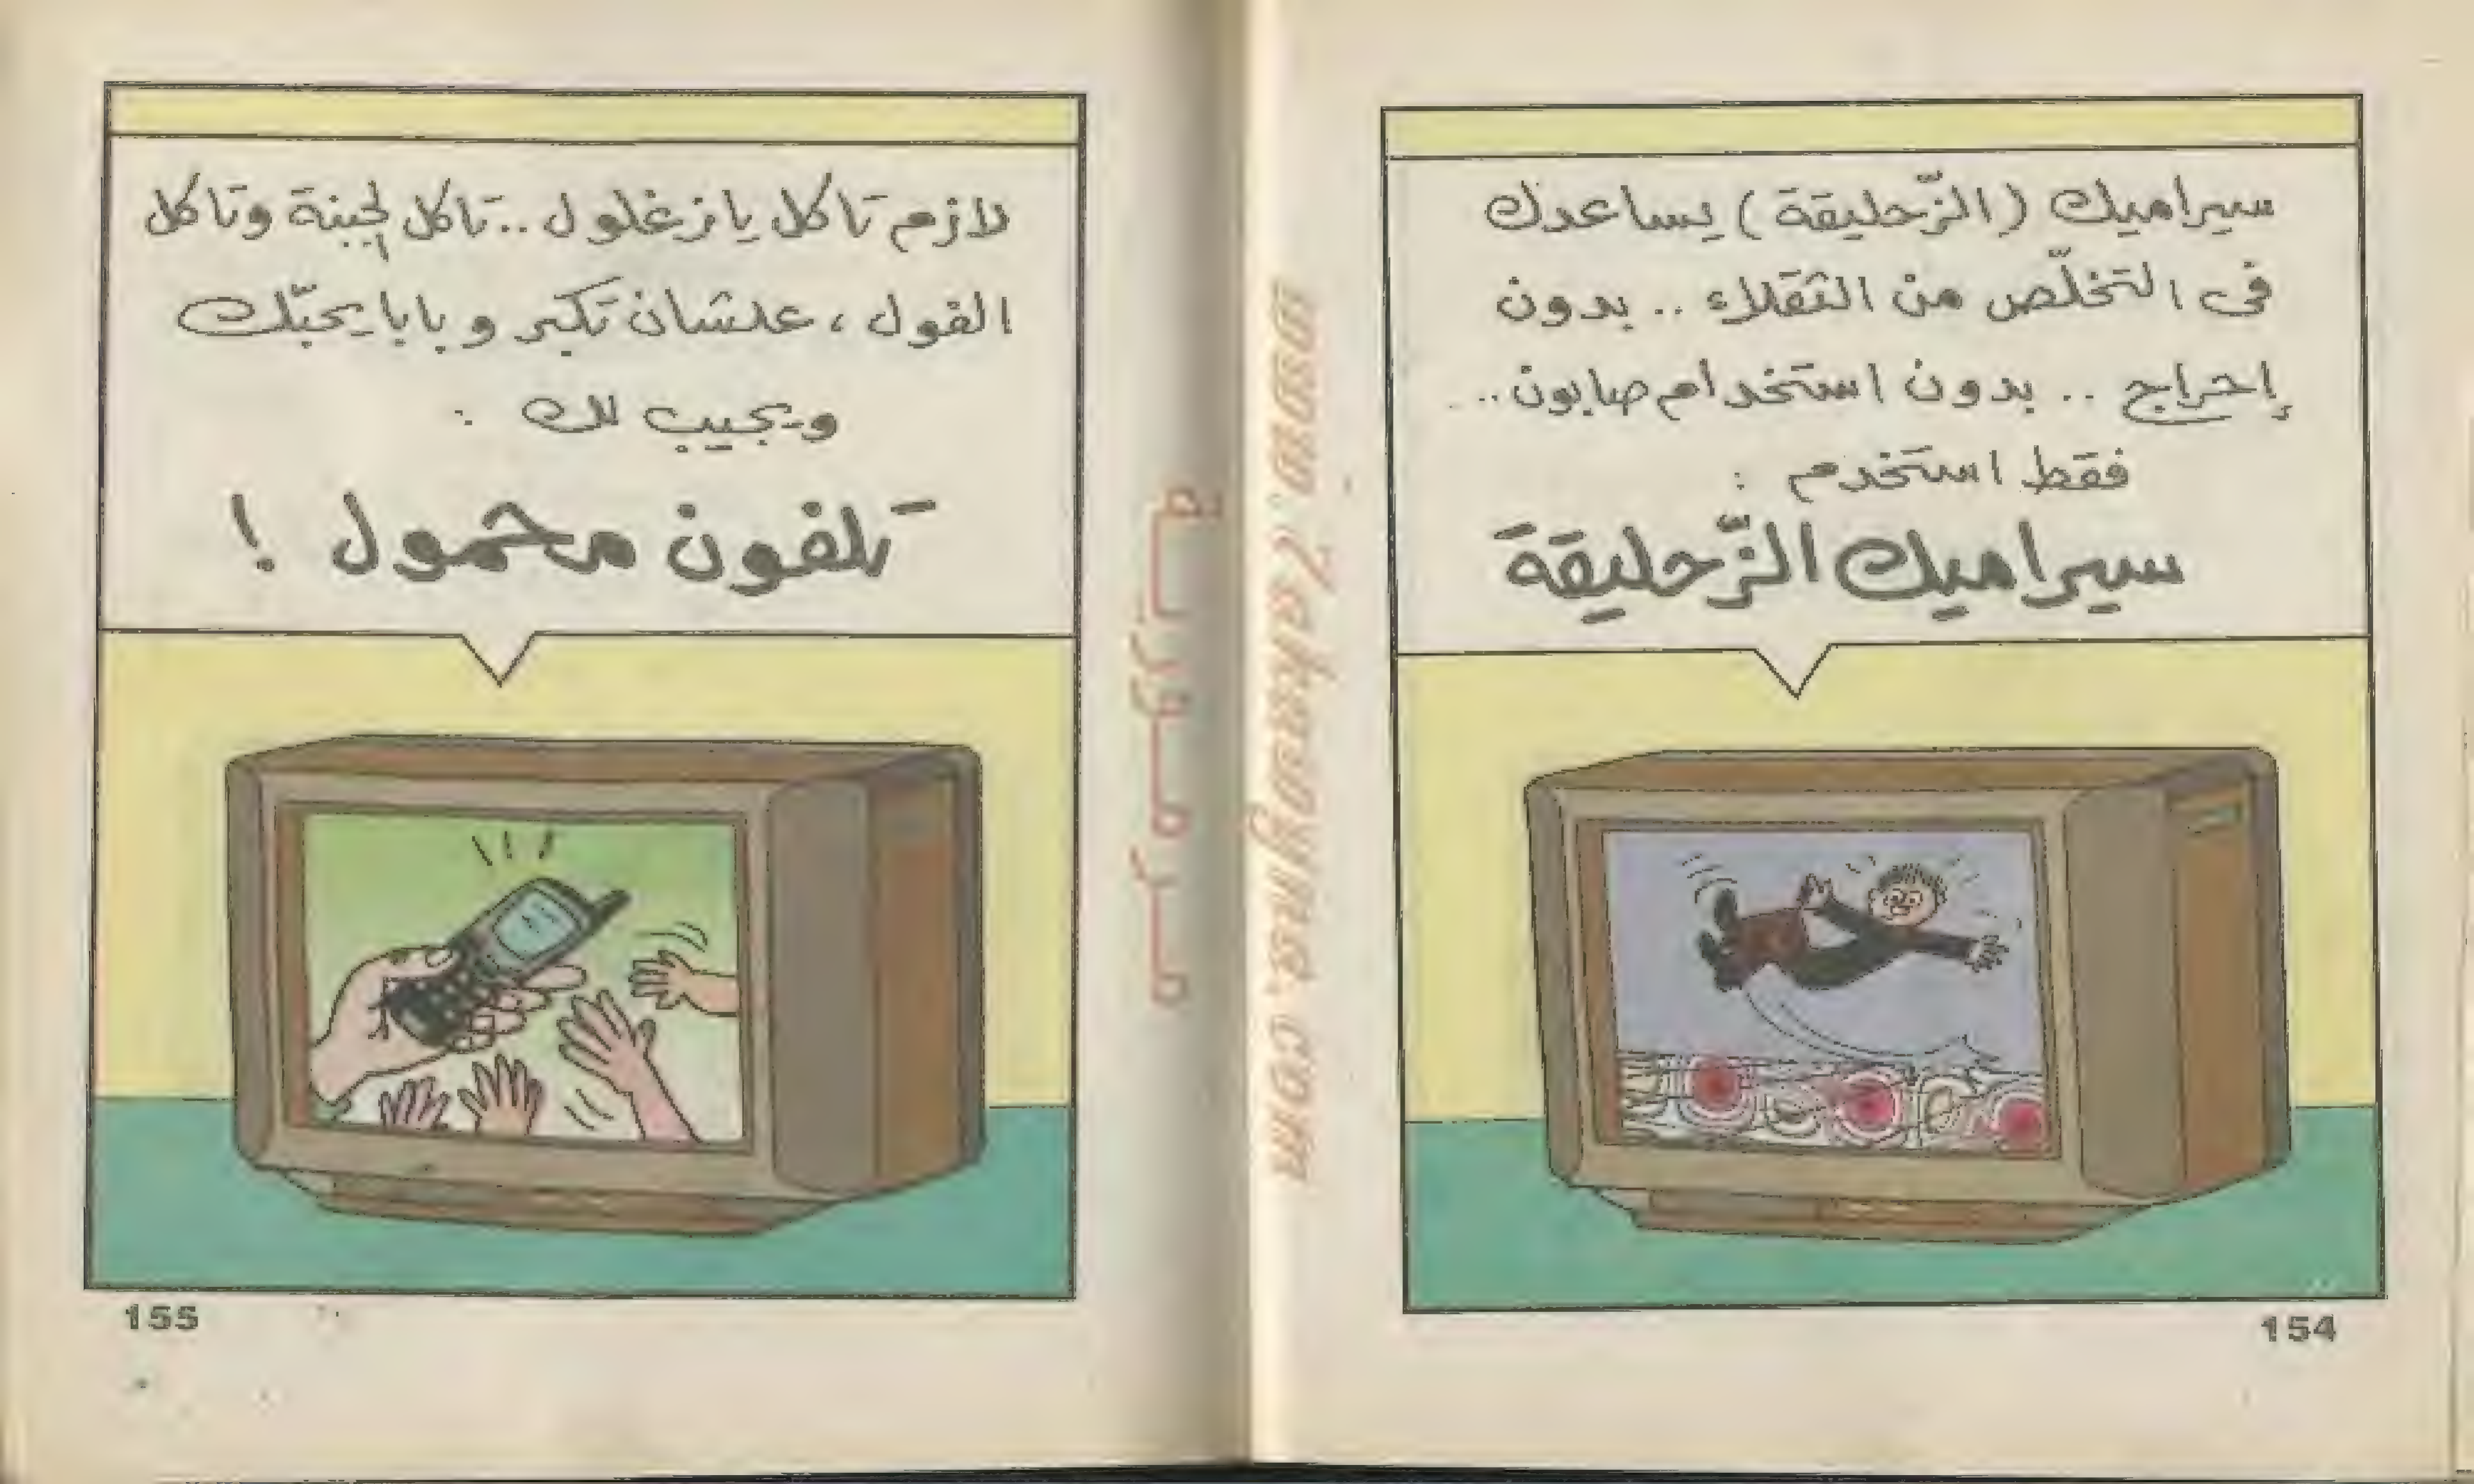 سيراميك (الزّحليقة) يساعدك
فى التخلّص من الثقلاء .. بدون
إحراج .. بدون استخدام صابون ..
فقط استخدم :
سيراميك الزّحليقة
154
لازم تاكل يا زغلول .. تاكل لجبنة وتاكل
الفول ، علشان تكبر و بابا يحبّك
و يجيب لك :
تلفون محمول !
155